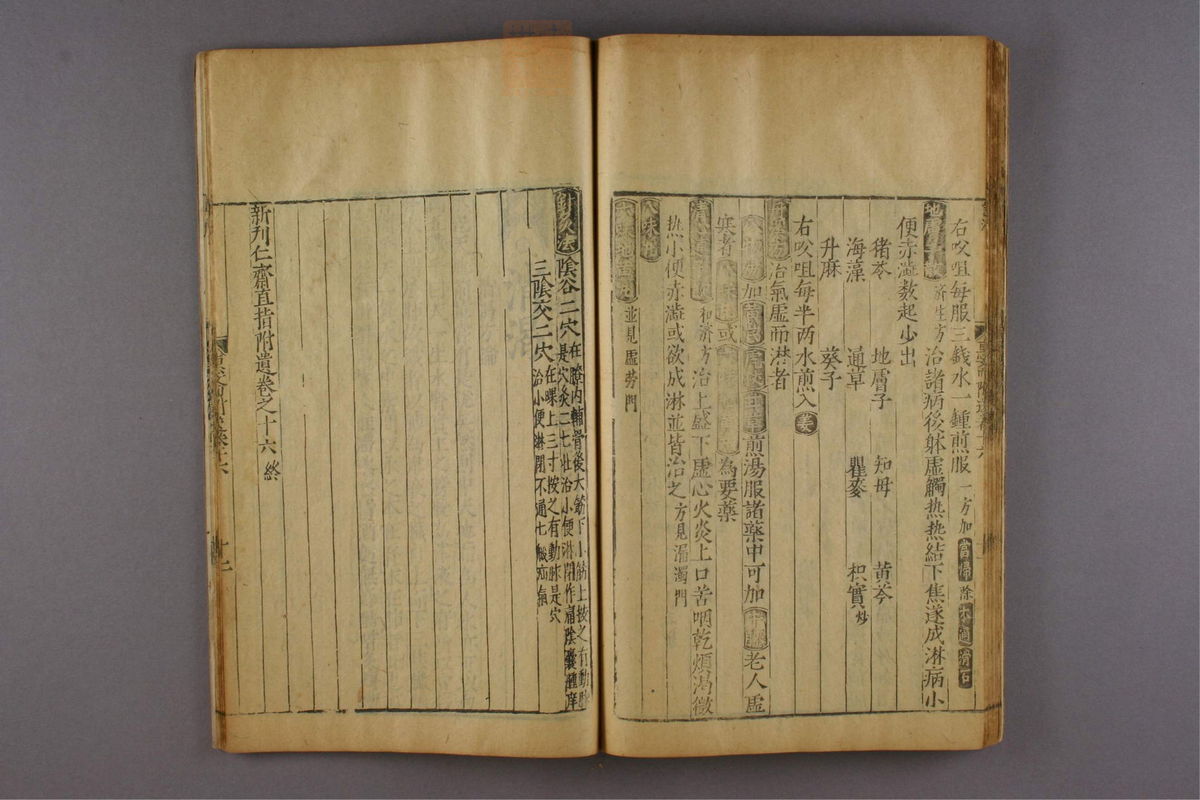 右㕮咀每服三錢水一鍾煎服一方加當歸除木通滑石
地膚子散濟生方治諸病後躰虛觸热热結下焦遂成淋病小
便赤澁数起少出
猪苓 地膚子 知母 黄芩
海藻 通草 瞿麥 枳實炒
升麻 葵子
右㕮咀每半两水煎入姜
治氣虛而淋者
加煎湯服諸藥中可加牛膝老人虛
寒者或為要藥
清心蓮子飲和濟方治上盛下虛心火炎上口苦咽乾煩渴微
热小便赤澁或欲成淋並皆治之方見漏濁門
八味丸
六味地黄丸並見虛勞門
針灸法陰谷二穴在膝内輔骨後大筋下小筋上按之有動脉
是穴灸二七壮治小便淋閉作痛陰囊腫痒
三陰交二穴在踝上三寸按之有動脉是穴
治小便淋閉不通七般疝氣
新刋仁齋直指附遺卷之十六 終